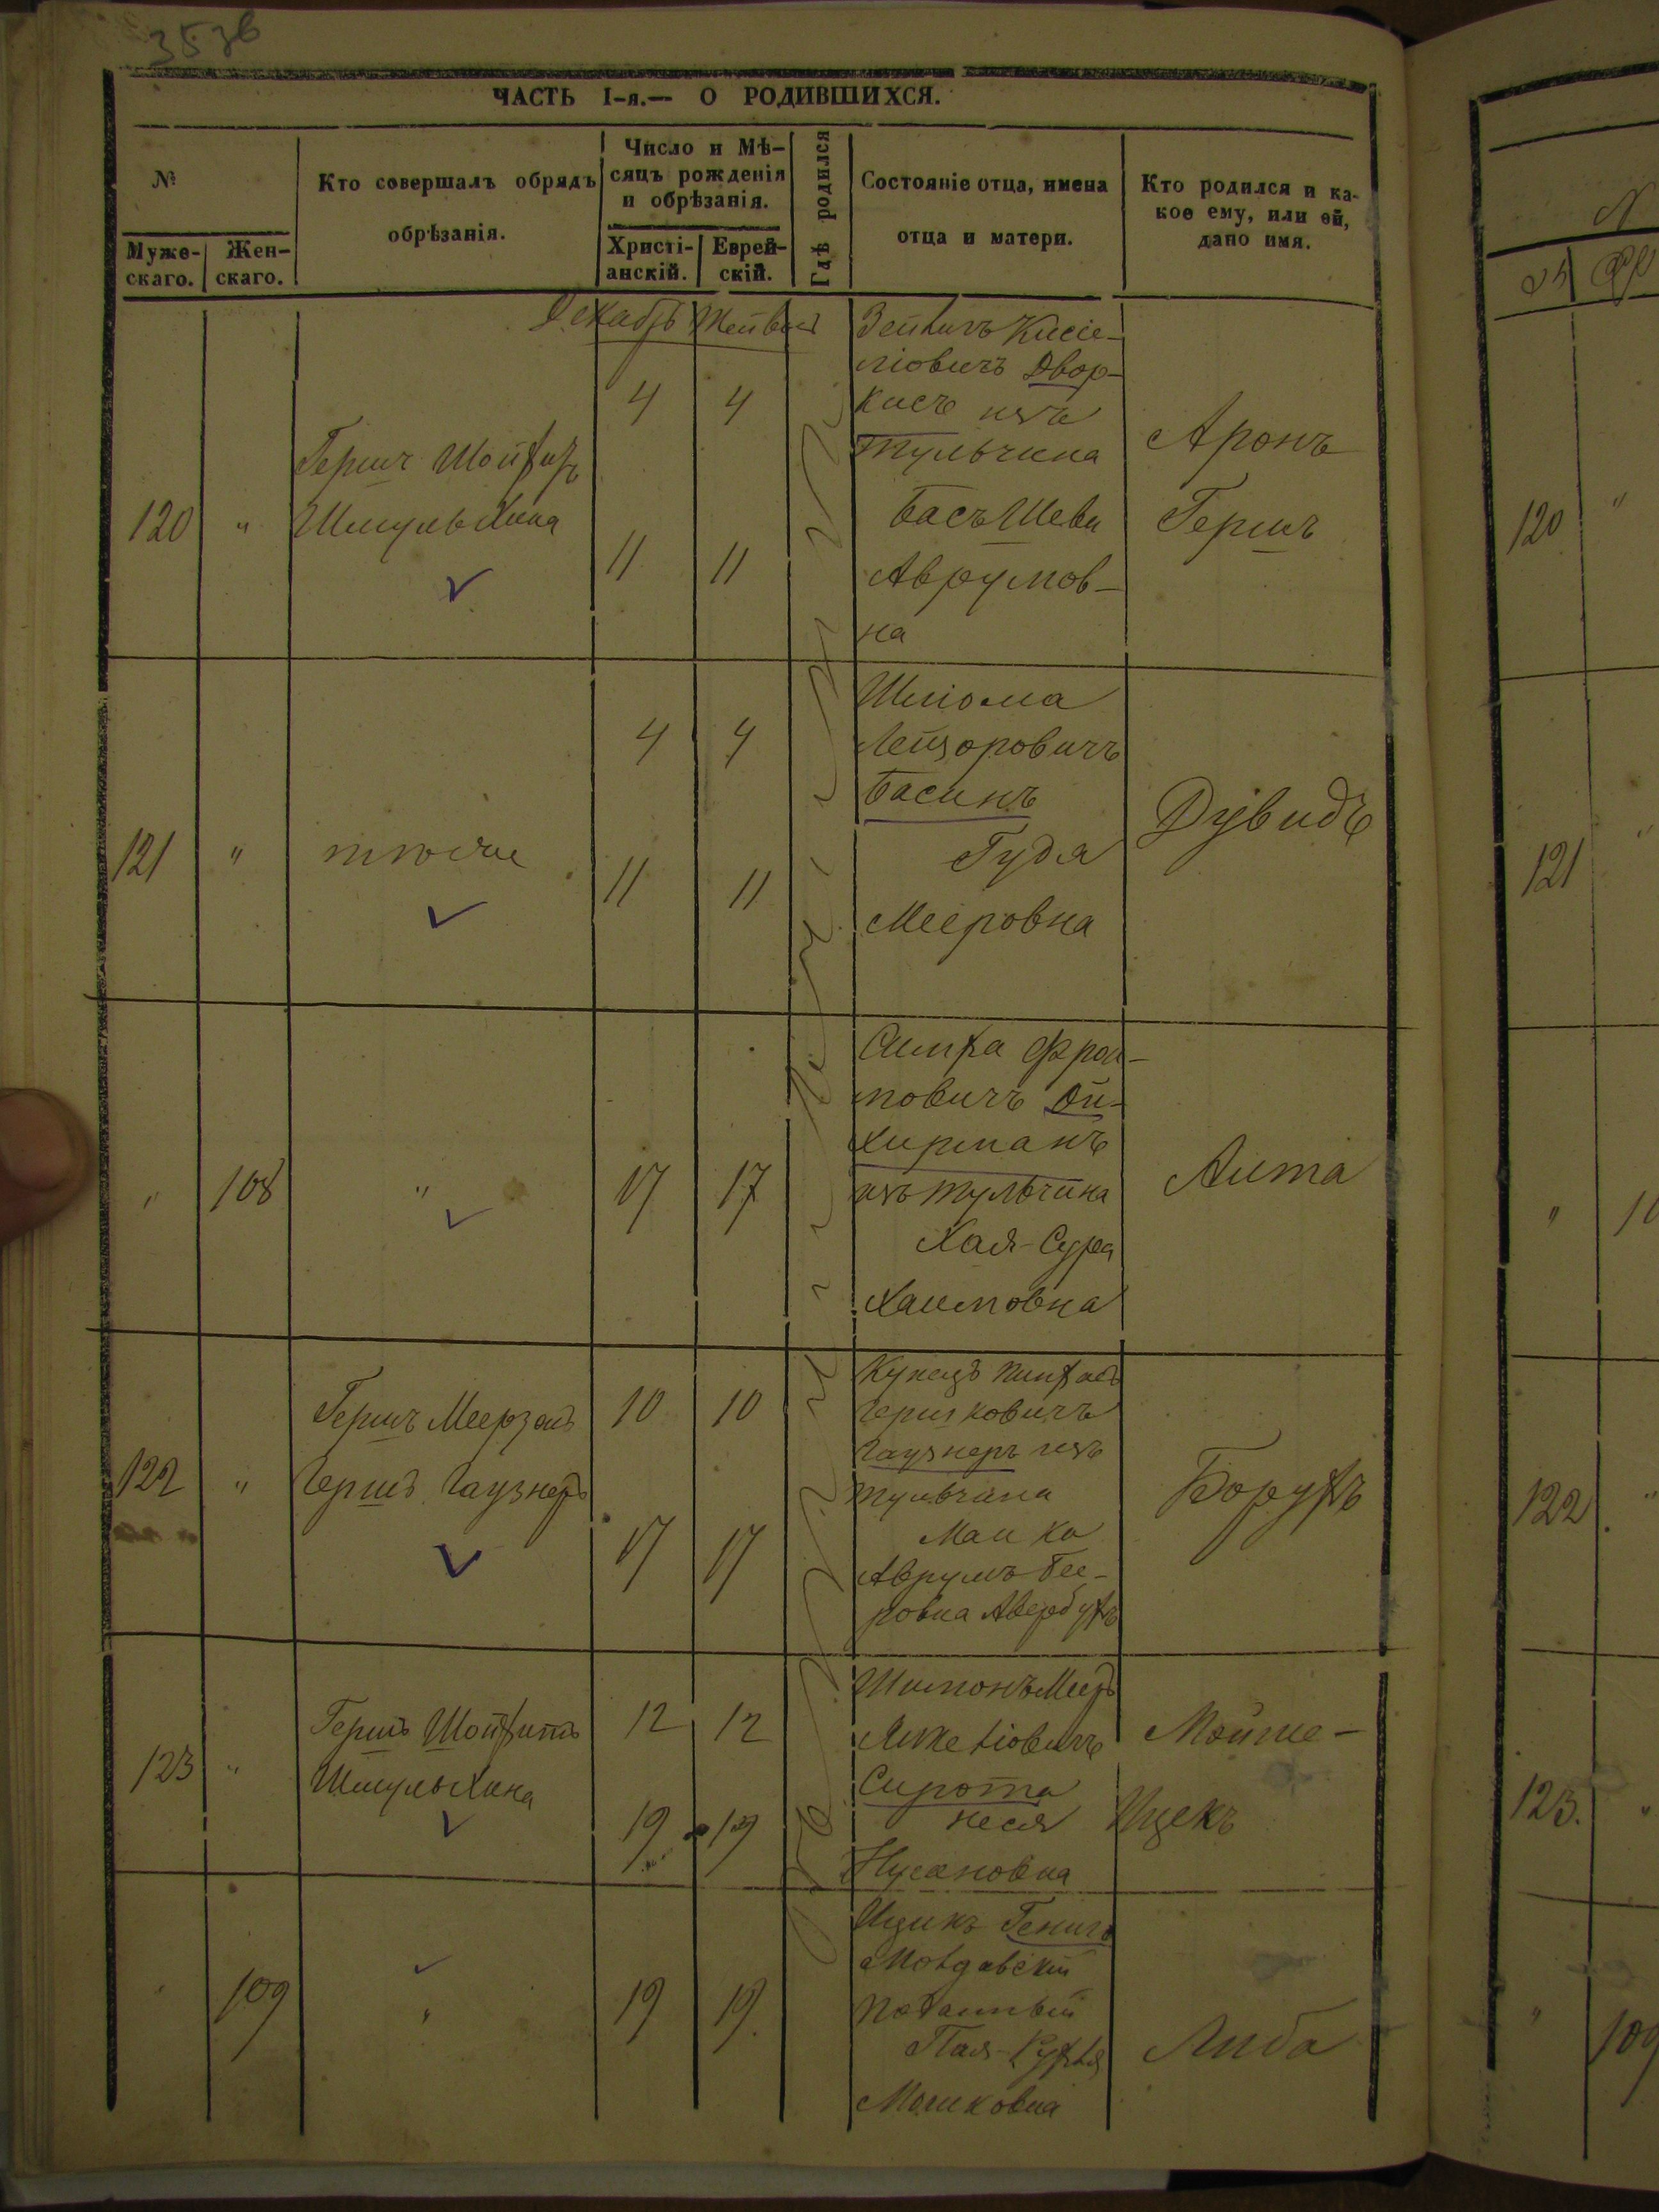 353б
ЧАСТЬ I-я.— О РОДИВШИХСЯ.
№
Муже-
скаго.
Жен-
скаго.
Кто совершалъ обрядъ
обрѣзанія.
Число и Мѣ-
сяцъ рожденія
и обрѣзанія.
Христі-
анскій.
Еврей-
скій.
Гдѣ родился
Состояніе отца, имена
отца и матери.
Кто родился и ка-
кое ему, или ей,
дано имя.
Декабрь Тейвесъ
120 "
Гершъ Шойхетъ
Шмуль Хина
4 4
11 11
Кисіе-
ліовичъ Двор-
кисъ изъ
Тульчина
Бась Шева
Аврумов-
на
Аронъ
Гершъ
121 "
тѣже
4 4
11 11
Шліома
Лейзоровичъ
Басинъ
Гудя
Мееровна
Дувидъ
" 108 "
17 17
Симха Фрои-
мовичъ Ой-
хирманъ
изъ Тульчина
Хая-Сура
Хаимовна
Аита
122 "
Гершъ Меерзонъ
Гершъ Гаузнеръ
10 10
17 17
Купецъ Пинхасъ
Гершковичъ
Гаузнеръ изъ
Тульчина
Малка
Аврумъ Бе-
ровна Авербухъ
Борухъ
123 "
Гершъ Шойхетъ
Шмуль Хина
12 12
19 19
Шимонъ Меер
Сирота
Неся
Нусановна
Мойше-
Ицекъ
109 "
19 19
Ицикъ Генигъ
Молдавскій
Подданный
Пая-Рухля
Мошковна
Либа
120 "
121
" 10
122
123. "
" 109